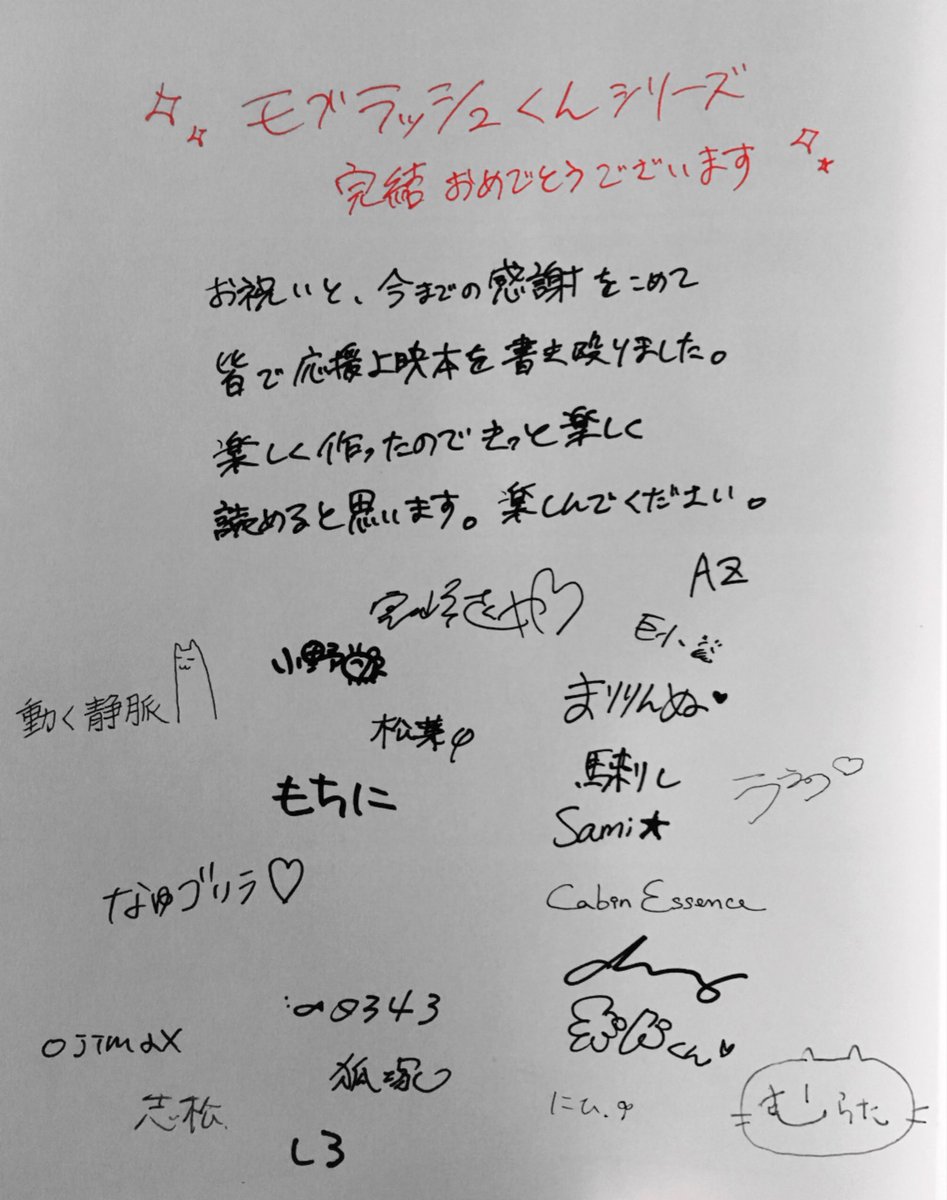 モブラッシュくんシリーズ
完結おめでとうございます
お祝いと、今までの感謝をこめて
皆で応援上映本を書き殴りました。
楽しく作ったのできっと楽しく
読めると思います。楽しんでください。
AZ
小野
動く静脈
まりりんぬ♥
松葉φ
馬刺し
もちに
Sami★
なゆゴリラ♡
Cabin Essence
0343
くん♥
ojimax
狐塚
志松
にひ.φ
むらた
しろ